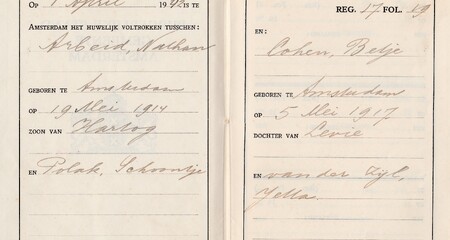 OP 1 April 1942 IS TE
AMSTERDAM HET HUWELIJK VOLTROKKEN TUSSCHEN:
Arbeid, Nathan
GEBOREN TE Amsterdam
OP 19 Mei 1914
ZOON VAN Hartog
EN Polak, Schoontje
REG. 17 FOL. 19
EN:
Cohen, Betje
GEBOREN TE Amsterdam
OP 5 Mei 1917
DOCHTER VAN Levie
EN van der Zijl,
Jetta.